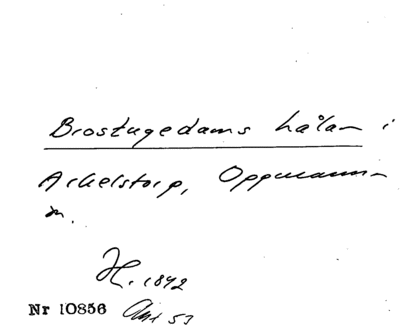 Brostugedams hålan i
Arkelstorp, Oppmanna-
n.
H. 1892
Nr 10856 Ant 53